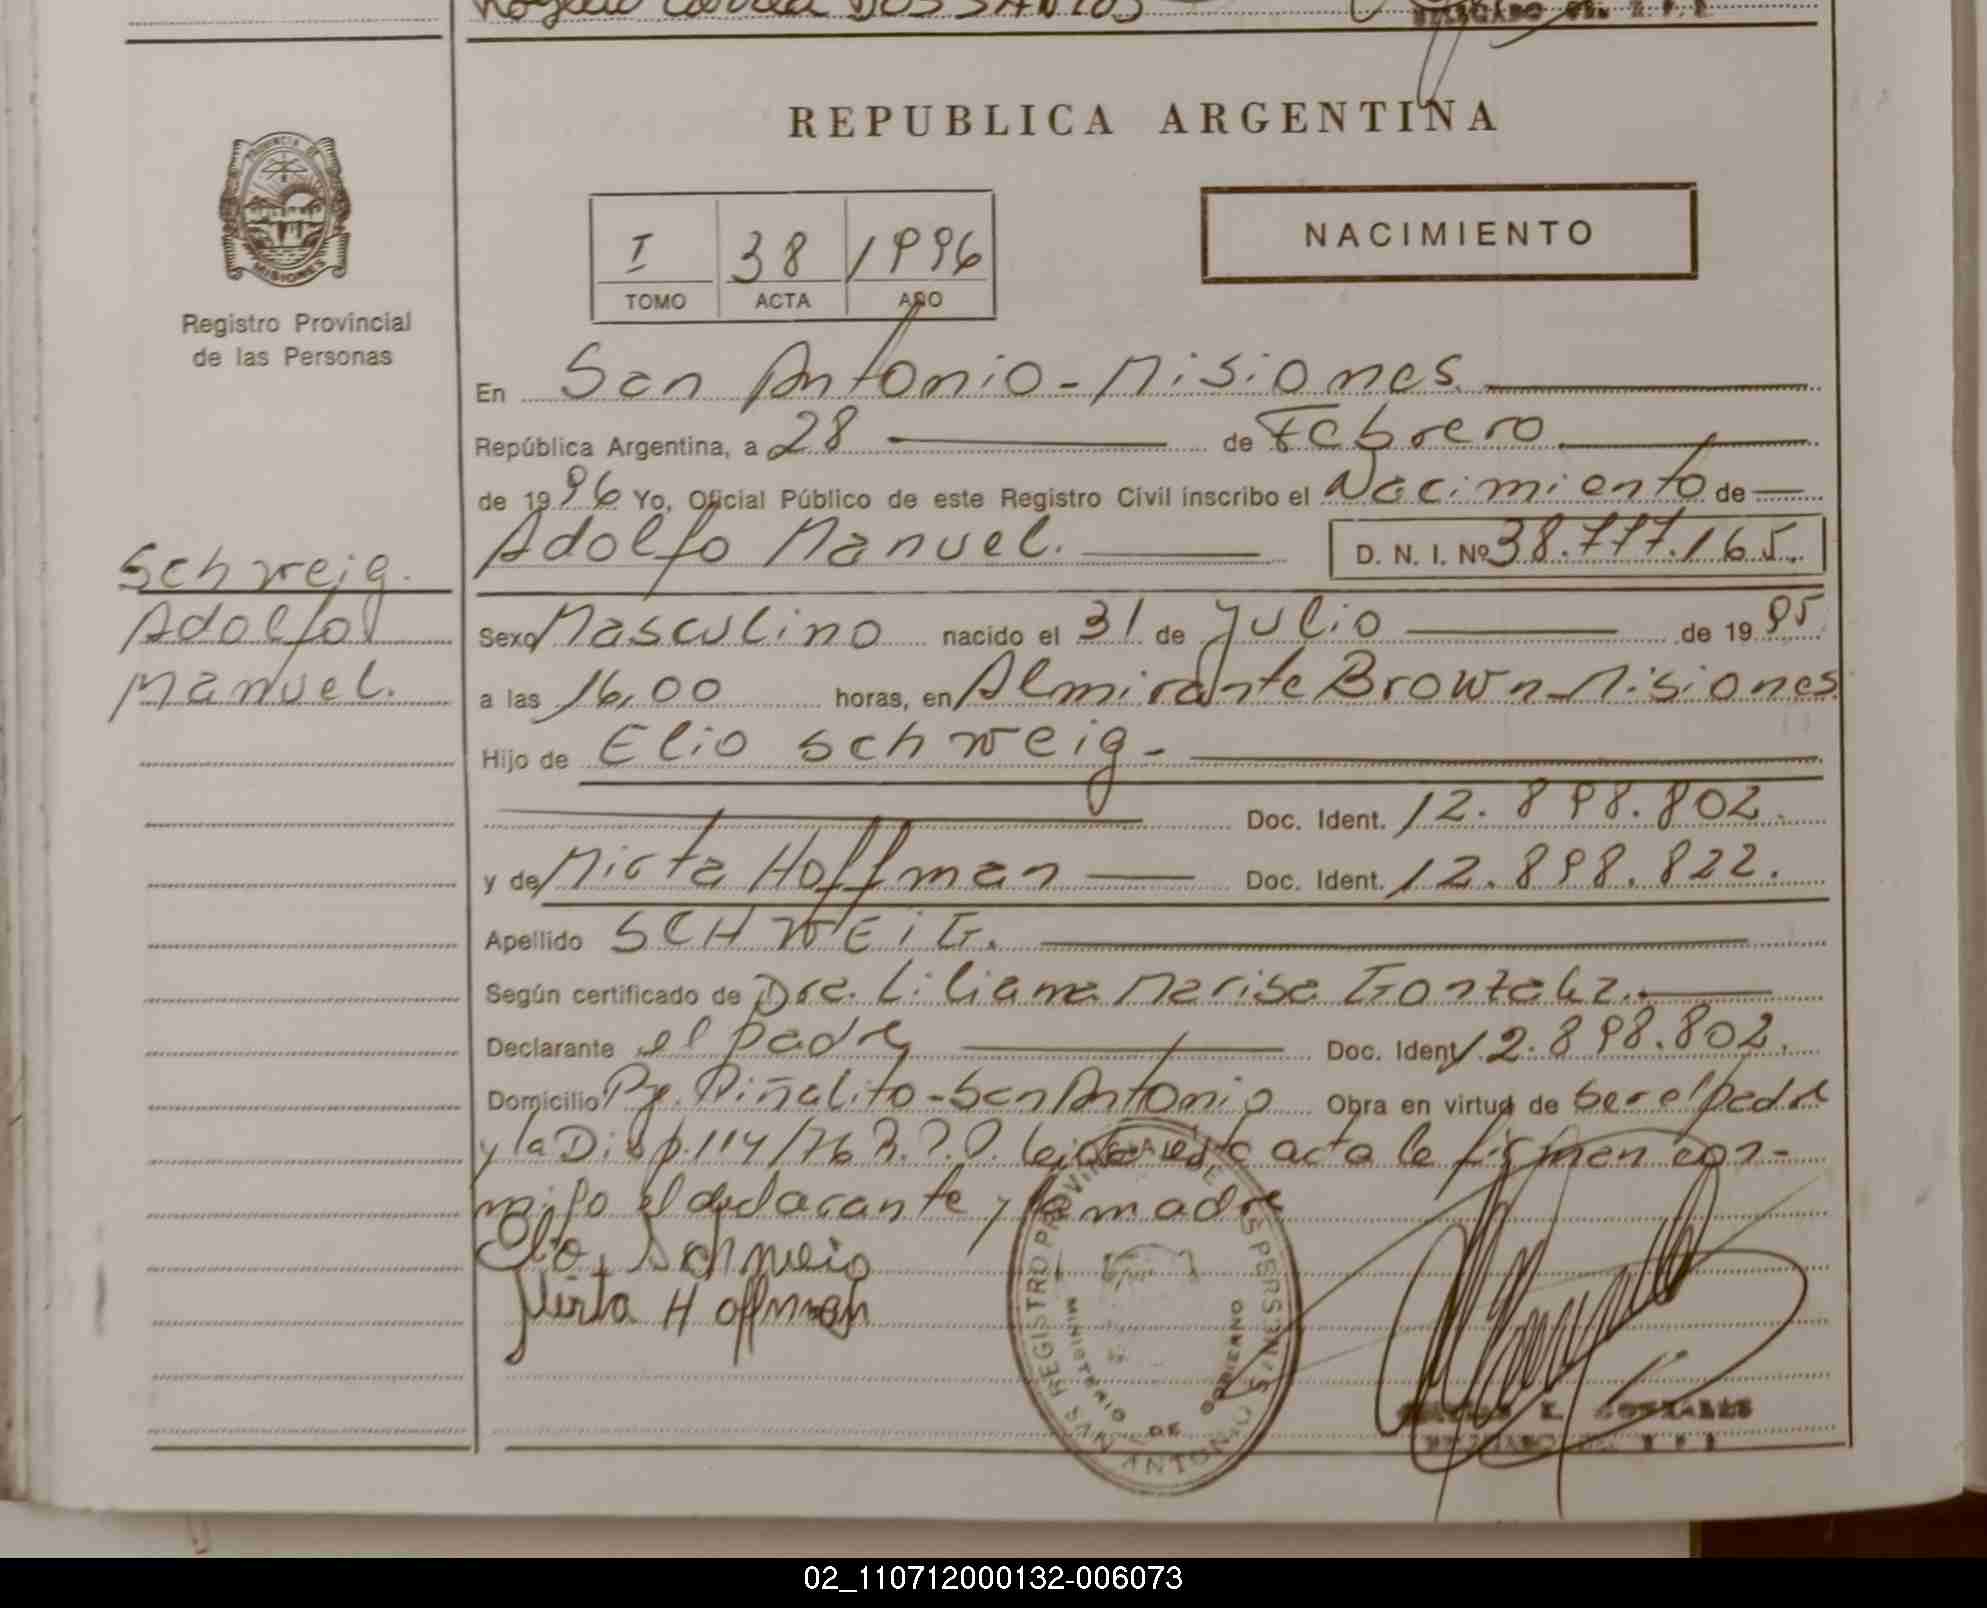 DOS SANTOS
REPUBLICA ARGENTINA
PROVINCIA DE
MISIONES
Registro Provincial
de las Personas
I 38 1996
TOMO ACTA AÑO
NACIMIENTO
En San Antonio - Misiones
República Argentina, a 28 de Febrero
de 1996 Yo, Oficial Público de este Registro Civil inscribo el Nacimiento de
Adolfo Manuel. D. N. I. Nº 38.777.165
Schweig.
Adolfo
Manuel.
Sexo Masculino nacido el 31 de Julio de 1995
a las 16,00 horas, en Almirante Brown - Misiones
Hijo de Elio Schweig -
Doc. Ident. 12.898.802.
y de Mirta Hoffman Doc. Ident. 12.898.822.
Apellido SCHWEIG.
Según certificado de Dra. Liliana Marisa Gonzalez.
Declarante el padre Doc. Ident 12.898.802.
Domicilio Pje. Piñalito - San Antonio Obra en virtud de ser el padre
y la Disp. 114/76 R.P.P. leida esta acta la firman con-
migo el declarante y la madre
Elio Schweig
Mirta Hoffman
REGISTRO PROVINCIAL DE LAS PERSONAS
MINISTERIO DE GOBIERNO
SAN ANTONIO
GONZALES
02_110712000132-006073